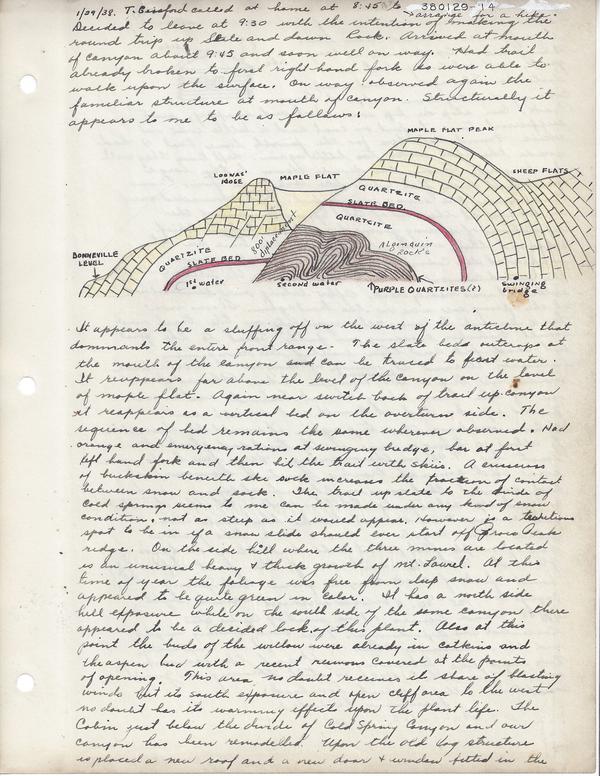 1/29/38. T. Bassford called at home at 8:45 to arrange for a hike.
380129-14
Decided to leave at 9:30 with the intention of making the
round trip up Slate and down Rock. Arrived at mouth
of canyon about 9:45 and soon well on way. Had trail
already broken to first right hand fork so were able to
walk upon the surface. On way observed again the
familiar structure at mouth of canyon. Structurally it
appears to me to be as follows:
MAPLE FLAT PEAK
LOOWAS' NOSE
MAPLE FLAT
SHEEP FLATS
QUARTZITE
SLATE BED
QUARTCITE
800' displacement
Algonquin Rock's
BONNEVILLE LEVEL
QUARTZITE
SLATE BED
1st water
second water
PURPLE QUARTZITES (?)
SWINGING bridge
It appears to be a sluffing off on the west of the anticline that
dominants the entire front range. The slate beds outcrops at
the mouth of the canyon and can be traced to first water.
It reappears far above the level of the canyon on the level
of maple flat. Again near switch back of trail up canyon
it reappears as a vertical bed on the overturn side. The
sequence of bed remains the same wherever observed. Had
orange and emergency rations at swinging bridge, bar at first
left hand fork and then hit the trail with skiis. A
of buckskin beneath ski sock increases the of contact
between snow and sock. The trail up slate to the divide of
cold springs seems to me can be made under any kind of snow
condition, not as steep as it would appear. However is a
spot to be in if a snow slide should ever start off Peak
ridge. On the side hill where the three mines are located
is an unusual heavy & thick growth of Mt. Laurel. At this
time of year the foliage was free from deep snow and
appeared to be quite green in color. It has a north side
hill exposure while on the south side of the same canyon there
appeared to be a decided lack of this plant. Also at this
point the buds of the willow were already in catkins and
the aspen bud with a recent covered at the points
of opening. This area no doubt receives it share of blasting
winds but its south exposure and open cliff area to the west
no doubt has its warming effect upon the plant life. The
Cabin just below the divide of Cold Spring Canyon and our
canyon has been remodelled. Upon the old log structure
is placed a new roof and a new door & window fitted in the